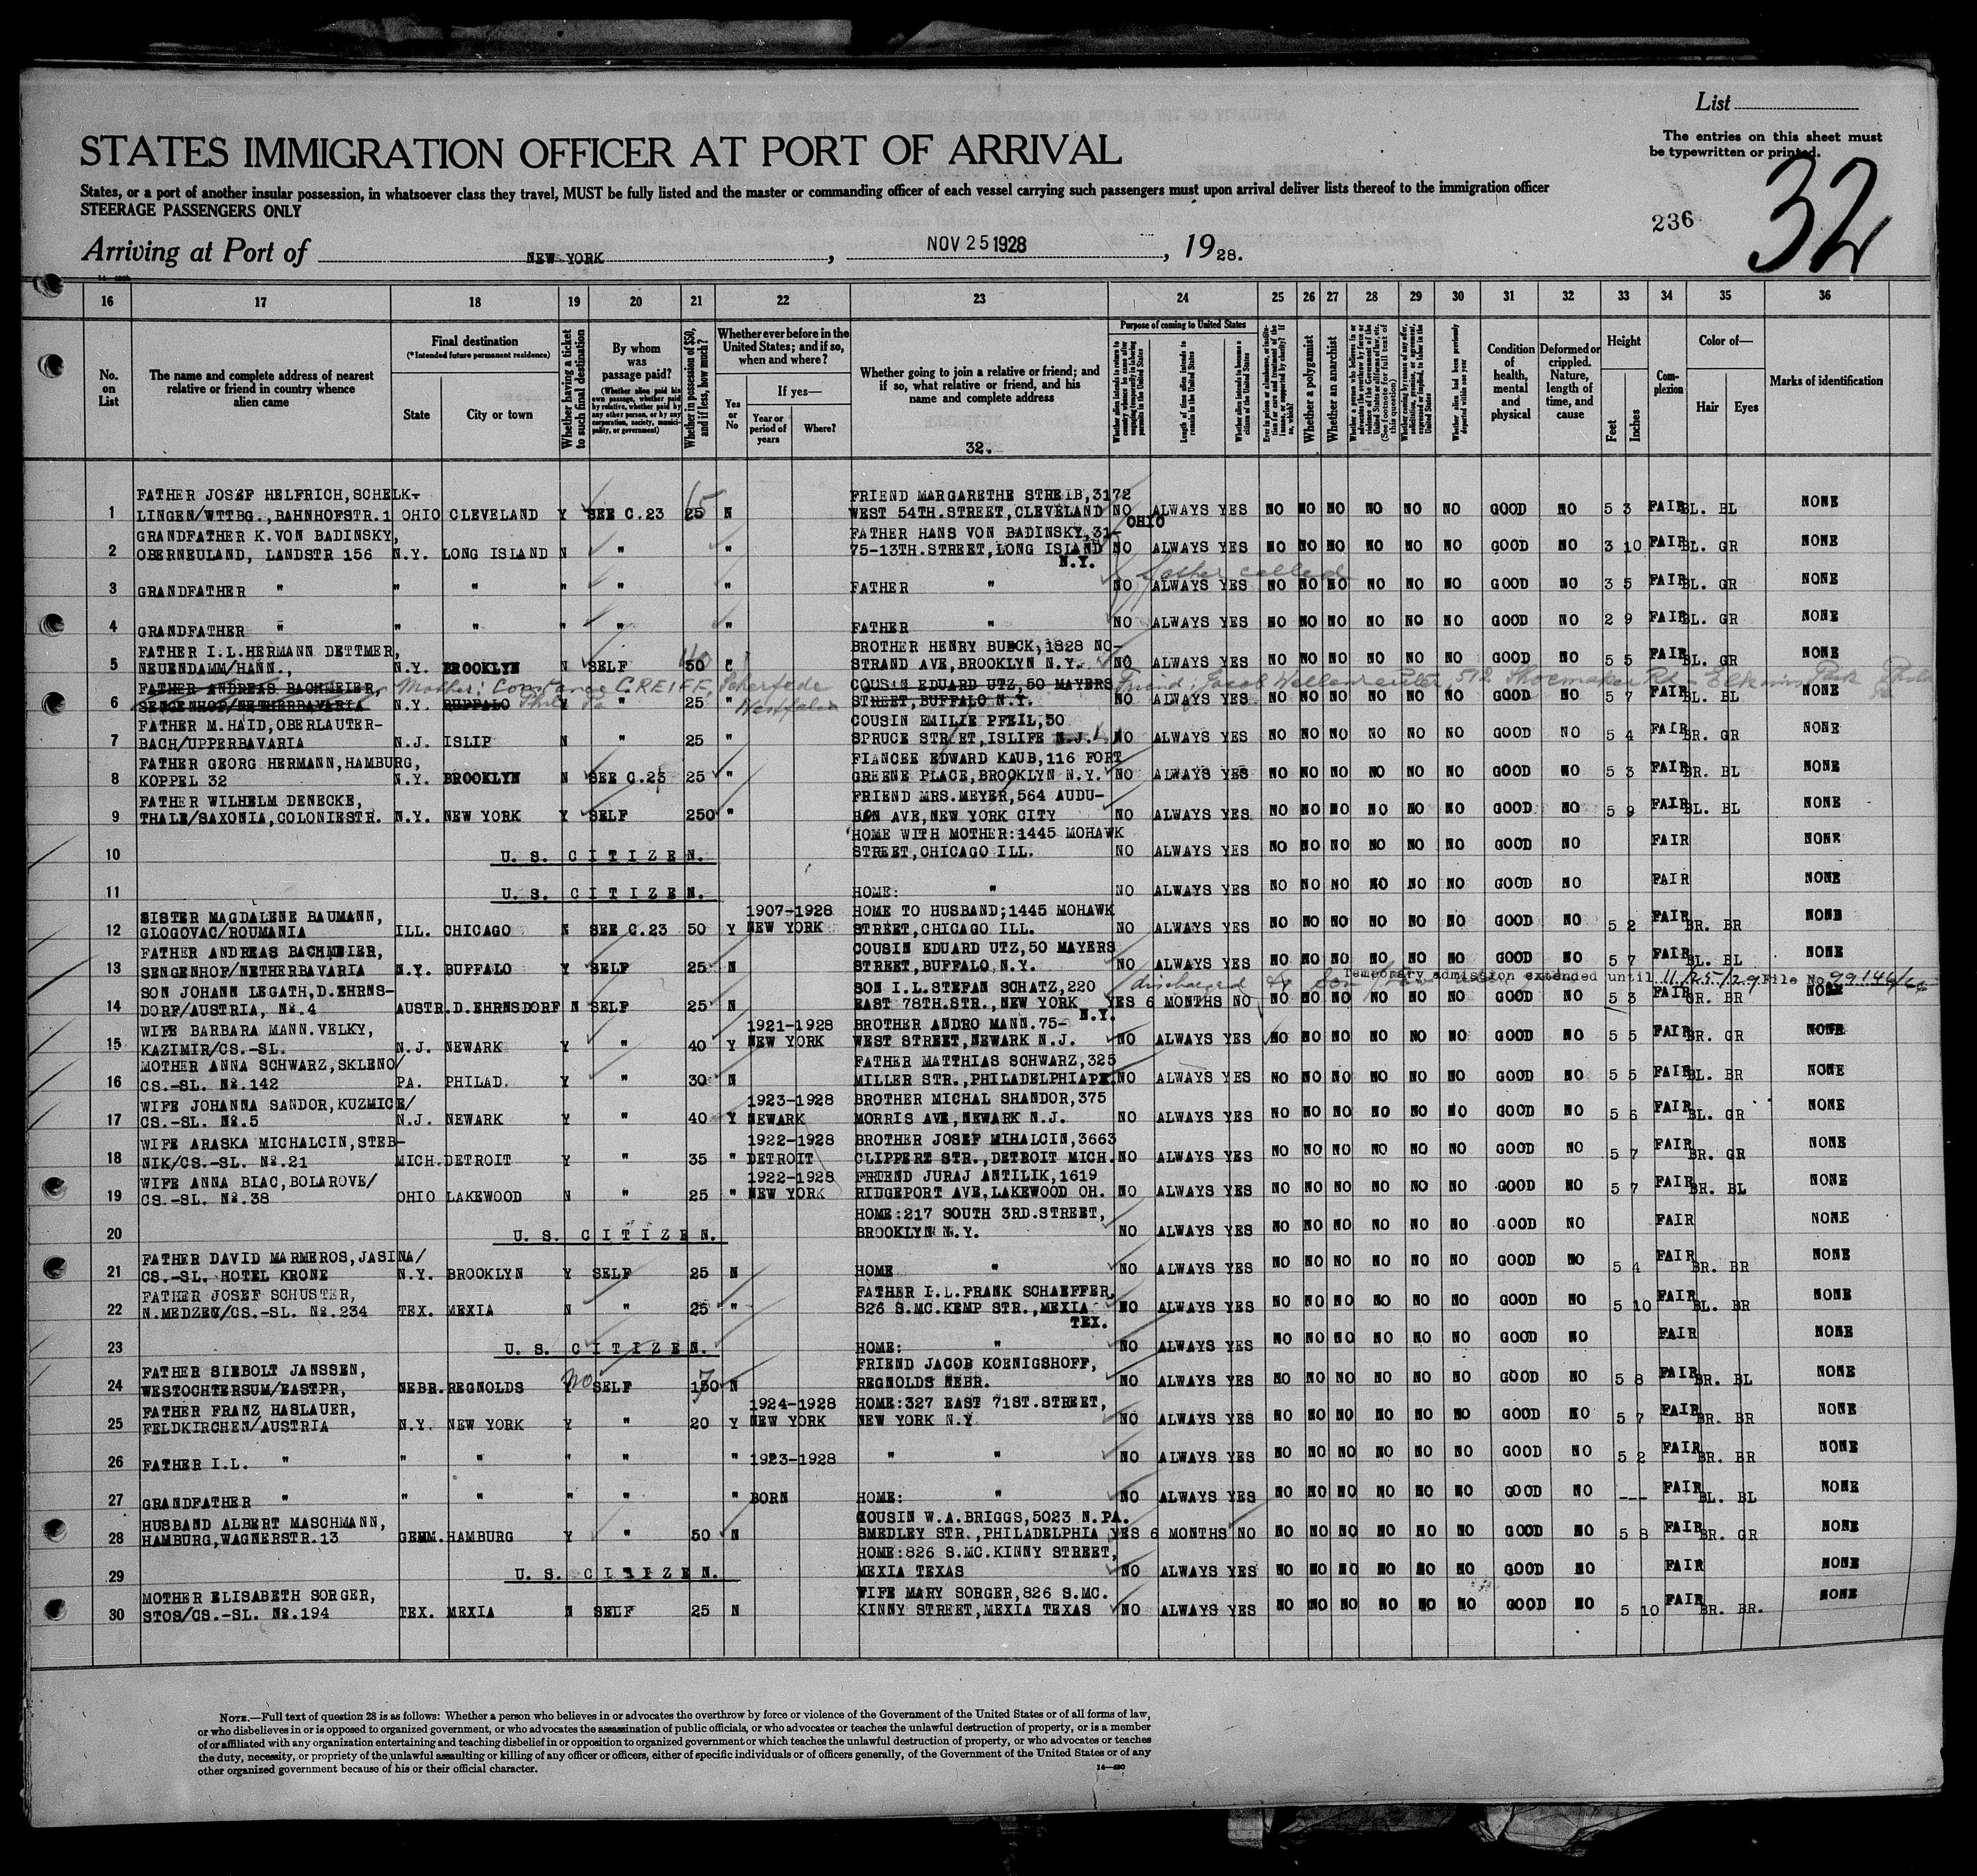 List
The entries on this sheet must
be typewritten or printed.
STATES IMMIGRATION OFFICER AT PORT OF ARRIVAL
32
States, or a port of another insular possession, in whatsoever class they travel, MUST be fully listed and the master or commanding officer of each vessel carrying such passengers must upon arrival deliver lists thereof to the immigration officer
STEERAGE PASSENGERS ONLY
236
Arriving at Port of NEW YORK, NOV 25 1928, 1928.
16 17 18 19 20 21 22 23 24 25 26 27 28 29 30 31 32 33 34 35 36
No. on List
The name and complete address of nearest relative or friend in country whence alien came
Final destination
(*Intended future permanent residence)
State
City or town
Whether having a ticket to such final destination
By whom was passage paid?
(Whether alien paid his own passage, whether paid by relative, whether paid by any other person, or by any corporation, society, municipality, or government)
Whether in possession of $50, and if less, how much?
Whether ever before in the United States; and if so, when and where?
Yes or No
If yes—
Year or period of years
Where?
Whether going to join a relative or friend; and if so, what relative or friend, and his name and complete address
32.
Purpose of coming to United States
Length of time alien intends to remain in the United States
Whether alien intends to become a citizen of the United States
Whether a polygamist
Whether an anarchist
Whether alien had been previously deported within one year
Condition of health, mental and physical
Deformed or crippled. Nature, length of time, and cause
Height
Feet
Inches
Complexion
Color of—
Hair
Eyes
Marks of identification
FATHER JOSEF HELFRICH,SCHELK- FRIEND MARGARETHE STREIB,3172
1 LINGEN/WTTBG.,BAHNHOFSTR.1 OHIO CLEVELAND Y SEE C.23 25 15 N WEST 54TH.STREET,CLEVELAND NO ALWAYS YES NO NO NO NO NO NO GOOD NO 5 3 FAIR BL. BL NONE
OHIO
GRANDFATHER K.VON BADINSKY, FATHER HANS VON BADINSKY,31-
2 OBERNEULAND, LANDSTR 156 N.Y. LONG ISLAND N " " 75-13TH.STREET,LONG ISLAND NO ALWAYS YES NO NO NO NO NO NO GOOD NO 3 10 FAIR BL. GR NONE
N.Y.
father called
3 GRANDFATHER " " " " " " FATHER " NO ALWAYS YES NO NO NO NO NO NO GOOD NO 3 5 FAIR BL. GR NONE
4 GRANDFATHER " " " " " " FATHER " NO ALWAYS YES NO NO NO NO NO NO GOOD NO 2 9 FAIR BL. GR NONE
FATHER I.L.HERMANN DETTMER, BROTHER HENRY BUECK,1828 NO-
5 NEUENDAMM/HANN., N.Y. BROOKLYN N SELF 50 STRAND AVE,BROOKLYN N.Y. NO ALWAYS YES NO NO NO NO NO NO GOOD NO 5 5 FAIR BL. GR NONE
FATHER ANDREAS BACHMEIER, Mother: Constance GREIFF, Scherfede COUSIN EDUARD UTZ,50 MAYERS Friend: Jacob 512 Shoemaker Rd - Elkins Park Phila
6 SENGENHOF/NETHERBAVARIA N.Y. BUFFALO Phila Pa Y " 25 " Westfalen STREET,BUFFALO N.Y. NO ALWAYS YES NO NO NO NO NO NO GOOD NO 5 7 FAIR BL. BL NONE
FATHER M.HAID,OBERLAUTER- COUSIN EMILIE PFEIL,50
7 BACH/UPPERBAVARIA N.J. ISLIP N " 25 " SPRUCE STREET,ISLIFE N.J. NO ALWAYS YES NO NO NO NO NO NO GOOD NO 5 4 FAIR BR. GR NONE
FATHER GEORG HERMANN,HAMBURG, FIANCEE EDWARD KAUB,116 FORT
8 KOPPEL 32 N.Y. BROOKLYN N SEE C.23 25 " GREENE PLACE,BROOKLYN N.Y. NO ALWAYS YES NO NO NO NO NO NO GOOD NO 5 3 FAIR BR. BL NONE
FATHER WILHELM DENECKE, FRIEND MRS.MEYER,564 AUDU-
9 THALE/SAXONIA,COLONIESTR. N.Y. NEW YORK Y SELF 250 " BON AVE,NEW YORK CITY NO ALWAYS YES NO NO NO NO NO NO GOOD NO 5 9 FAIR BL. BL NONE
HOME WITH MOTHER:1445 MOHAWK
10 U. S. CITIZEN. STREET,CHICAGO ILL. NO ALWAYS YES NO NO NO NO NO NO GOOD NO FAIR NONE
11 U. S. CITIZEN. HOME: " NO ALWAYS YES NO NO NO NO NO NO GOOD NO FAIR NONE
SISTER MAGDALENE BAUMANN, 1907-1928 HOME TO HUSBAND;1445 MOHAWK
12 GLOGOVAC/ROUMANIA ILL. CHICAGO N SEE C.23 50 Y NEW YORK STREET,CHICAGO ILL. NO ALWAYS YES NO NO NO NO NO NO GOOD NO 5 2 FAIR BR. BR NONE
FATHER ANDREAS BACHMEIER, COUSIN EDUARD UTZ,50 MAYERS
13 SENGENHOF/NETHERBAVARIA N.Y. BUFFALO Y SELF 25 N STREET,BUFFALO,N.Y. NO ALWAYS YES NO NO NO NO NO NO GOOD NO 5 7 FAIR BL. BL NONE
discharged to Son Temporary admission extended until 11/25/29 File No. 99146/
SON JOHANN LEGATH,D.EHRNS- SON I.L.STEFAN SCHATZ,220
14 DORF/AUSTRIA, No.4 AUSTR.D.EHRNSDORF N SELF 25 N EAST 78TH.STR.,NEW YORK YES 6 MONTHS NO NO NO NO NO NO NO GOOD NO 5 3 FAIR GR. BR NONE
N.Y.
WIFE BARBARA MANN.VELKY, 1921-1928 BROTHER ANDRO MANN.75-
15 KAZIMIR/CS.-SL. N.J. NEWARK Y " 40 Y NEW YORK WEST STREET,NEWARK N.J. NO ALWAYS YES NO NO NO NO NO NO GOOD NO 5 5 FAIR BR. GR NONE
MOTHER ANNA SCHWARZ,SKLENO/ FATHER MATTHIAS SCHWARZ,325
16 CS.-SL. No.142 PA. PHILAD. Y " 30 N MILLER STR.,PHILADELPHIA NO ALWAYS YES NO NO NO NO NO NO GOOD NO 5 5 FAIR BL. BR NONE
WIFE JOHANNA SANDOR,KUZMICE/ 1923-1928 BROTHER MICHAL SHANDOR,375
17 CS.-SL. No.5 N.J. NEWARK Y " 40 Y NEWARK MORRIS AVE,NEWARK N.J. NO ALWAYS YES NO NO NO NO NO NO GOOD NO 5 6 FAIR BL. GR NONE
WIFE ARASKA MICHALCIN,STEB- 1922-1928 BROTHER JOSEF MIHALCIN,3663
18 NIK/CS.-SL. No.21 MICH.DETROIT Y " 35 " DETROIT CLIPPERT STR.,DETROIT MICH. NO ALWAYS YES NO NO NO NO NO NO GOOD NO 5 7 FAIR BR. GR NONE
WIFE ANNA BIAC,BOLAROVE/ 1922-1928 FRUEND JURAJ ANTILIK,1619
19 CS.-SL. No.38 OHIO LAKEWOOD N " 25 " NEW YORK RIDGEPORT AVE,LAKEWOOD OH. NO ALWAYS YES NO NO NO NO NO NO GOOD NO 5 7 FAIR BR. BL NONE
HOME:217 SOUTH 3RD.STREET,
20 U. S. CITIZEN. BROOKLYN N.Y. NO ALWAYS YES NO NO NO NO NO NO GOOD NO FAIR NONE
FATHER DAVID MARMEROS,JASINA/
21 CS.-SL. HOTEL KRONE N.Y. BROOKLYN Y SELF 25 N HOME " NO ALWAYS YES NO NO NO NO NO NO GOOD NO 5 4 FAIR BR. BR NONE
FATHER JOSEF SCHUSTER, FATHER I.L.FRANK SCHAEFFER,
22 N.MEDZEN/CS.-SL. No.234 TEX. MEXIA N " 25 " 826 S.MC.KEMP STR.,MEXIA NO ALWAYS YES NO NO NO NO NO NO GOOD NO 5 10 FAIR BL. BR NONE
TEX.
23 U. S. CITIZEN. HOME: " NO ALWAYS YES NO NO NO NO NO NO GOOD NO FAIR NONE
FATHER SIEBOLT JANSSEN, FRIEND JACOB KOENIGSHOFF,
24 WESTOCHTERSUM/EASTPR, NEBR.REGNOLDS Y no SELF 150 N REGNOLDS NEBR. NO ALWAYS YES NO NO NO NO NO NO GOOD NO 5 8 FAIR BR. BL NONE
FATHER FRANZ HASLAUER, 1924-1928 HOME:327 EAST 71ST.STREET,
25 FELDKIRCHEN/AUSTRIA N.Y. NEW YORK Y " 20 Y NEW YORK NEW YORK N.Y. NO ALWAYS YES NO NO NO NO NO NO GOOD NO 5 7 FAIR BR. BR NONE
26 FATHER I.L. " " " " " " 1923-1928 " " NO ALWAYS YES NO NO NO NO NO NO GOOD NO 5 2 FAIR BR. BR NONE
27 GRANDFATHER " " " " " " BORN HOME: " NO ALWAYS YES NO NO NO NO NO NO GOOD NO --- FAIR BL. BL NONE
HUSBAND ALBERT MASCHMANN, COUSIN W.A.BRIGGS,5023 N.PA.
28 HAMBURG,WAGNERSTR.13 GERM.HAMBURG Y " 50 N SMEDLEY STR.,PHILADELPHIA YES 6 MONTHS NO NO NO NO NO NO NO GOOD NO 5 8 FAIR BR. GR NONE
HOME:826 S.MC.KINNY STREET,
29 U. S. CITIZEN. MEXIA TEXAS NO ALWAYS YES NO NO NO NO NO NO GOOD NO FAIR NONE
MOTHER ELISABETH SORGER, WIFE MARY SORGER,826 S.MC.
30 STOS/CS.-SL. No.194 TEX. MEXIA N SELF 25 N KINNY STREET,MEXIA TEXAS NO ALWAYS YES NO NO NO NO NO NO GOOD NO 5 10 FAIR BR. BR. NONE
NOTE.—Full text of question 28 is as follows: Whether a person who believes in or advocates the overthrow by force or violence of the Government of the United States or of all forms of law,
or who disbelieves in or is opposed to organized government, or who advocates the assassination of public officials, or who advocates or teaches the unlawful destruction of property, or is a member
of or affiliated with any organization entertaining and teaching disbelief in or opposition to organized government or which teaches the unlawful destruction of property, or who advocates or teaches
the duty, necessity, or propriety of the unlawful assaulting or killing of any officer or officers, either of specific individuals or of officers generally, of the Government of the United States or of any
other organized government because of his or their official character.
14—430